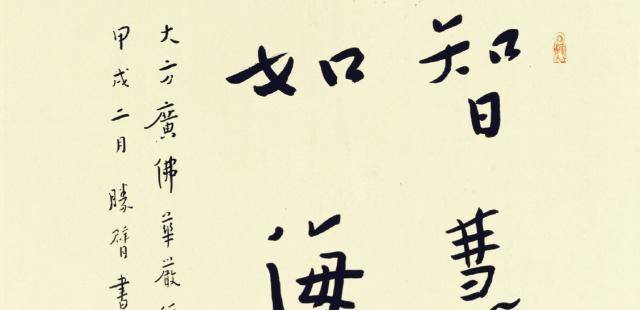 智慧
如海
大方廣佛華嚴
甲戌二月勝書